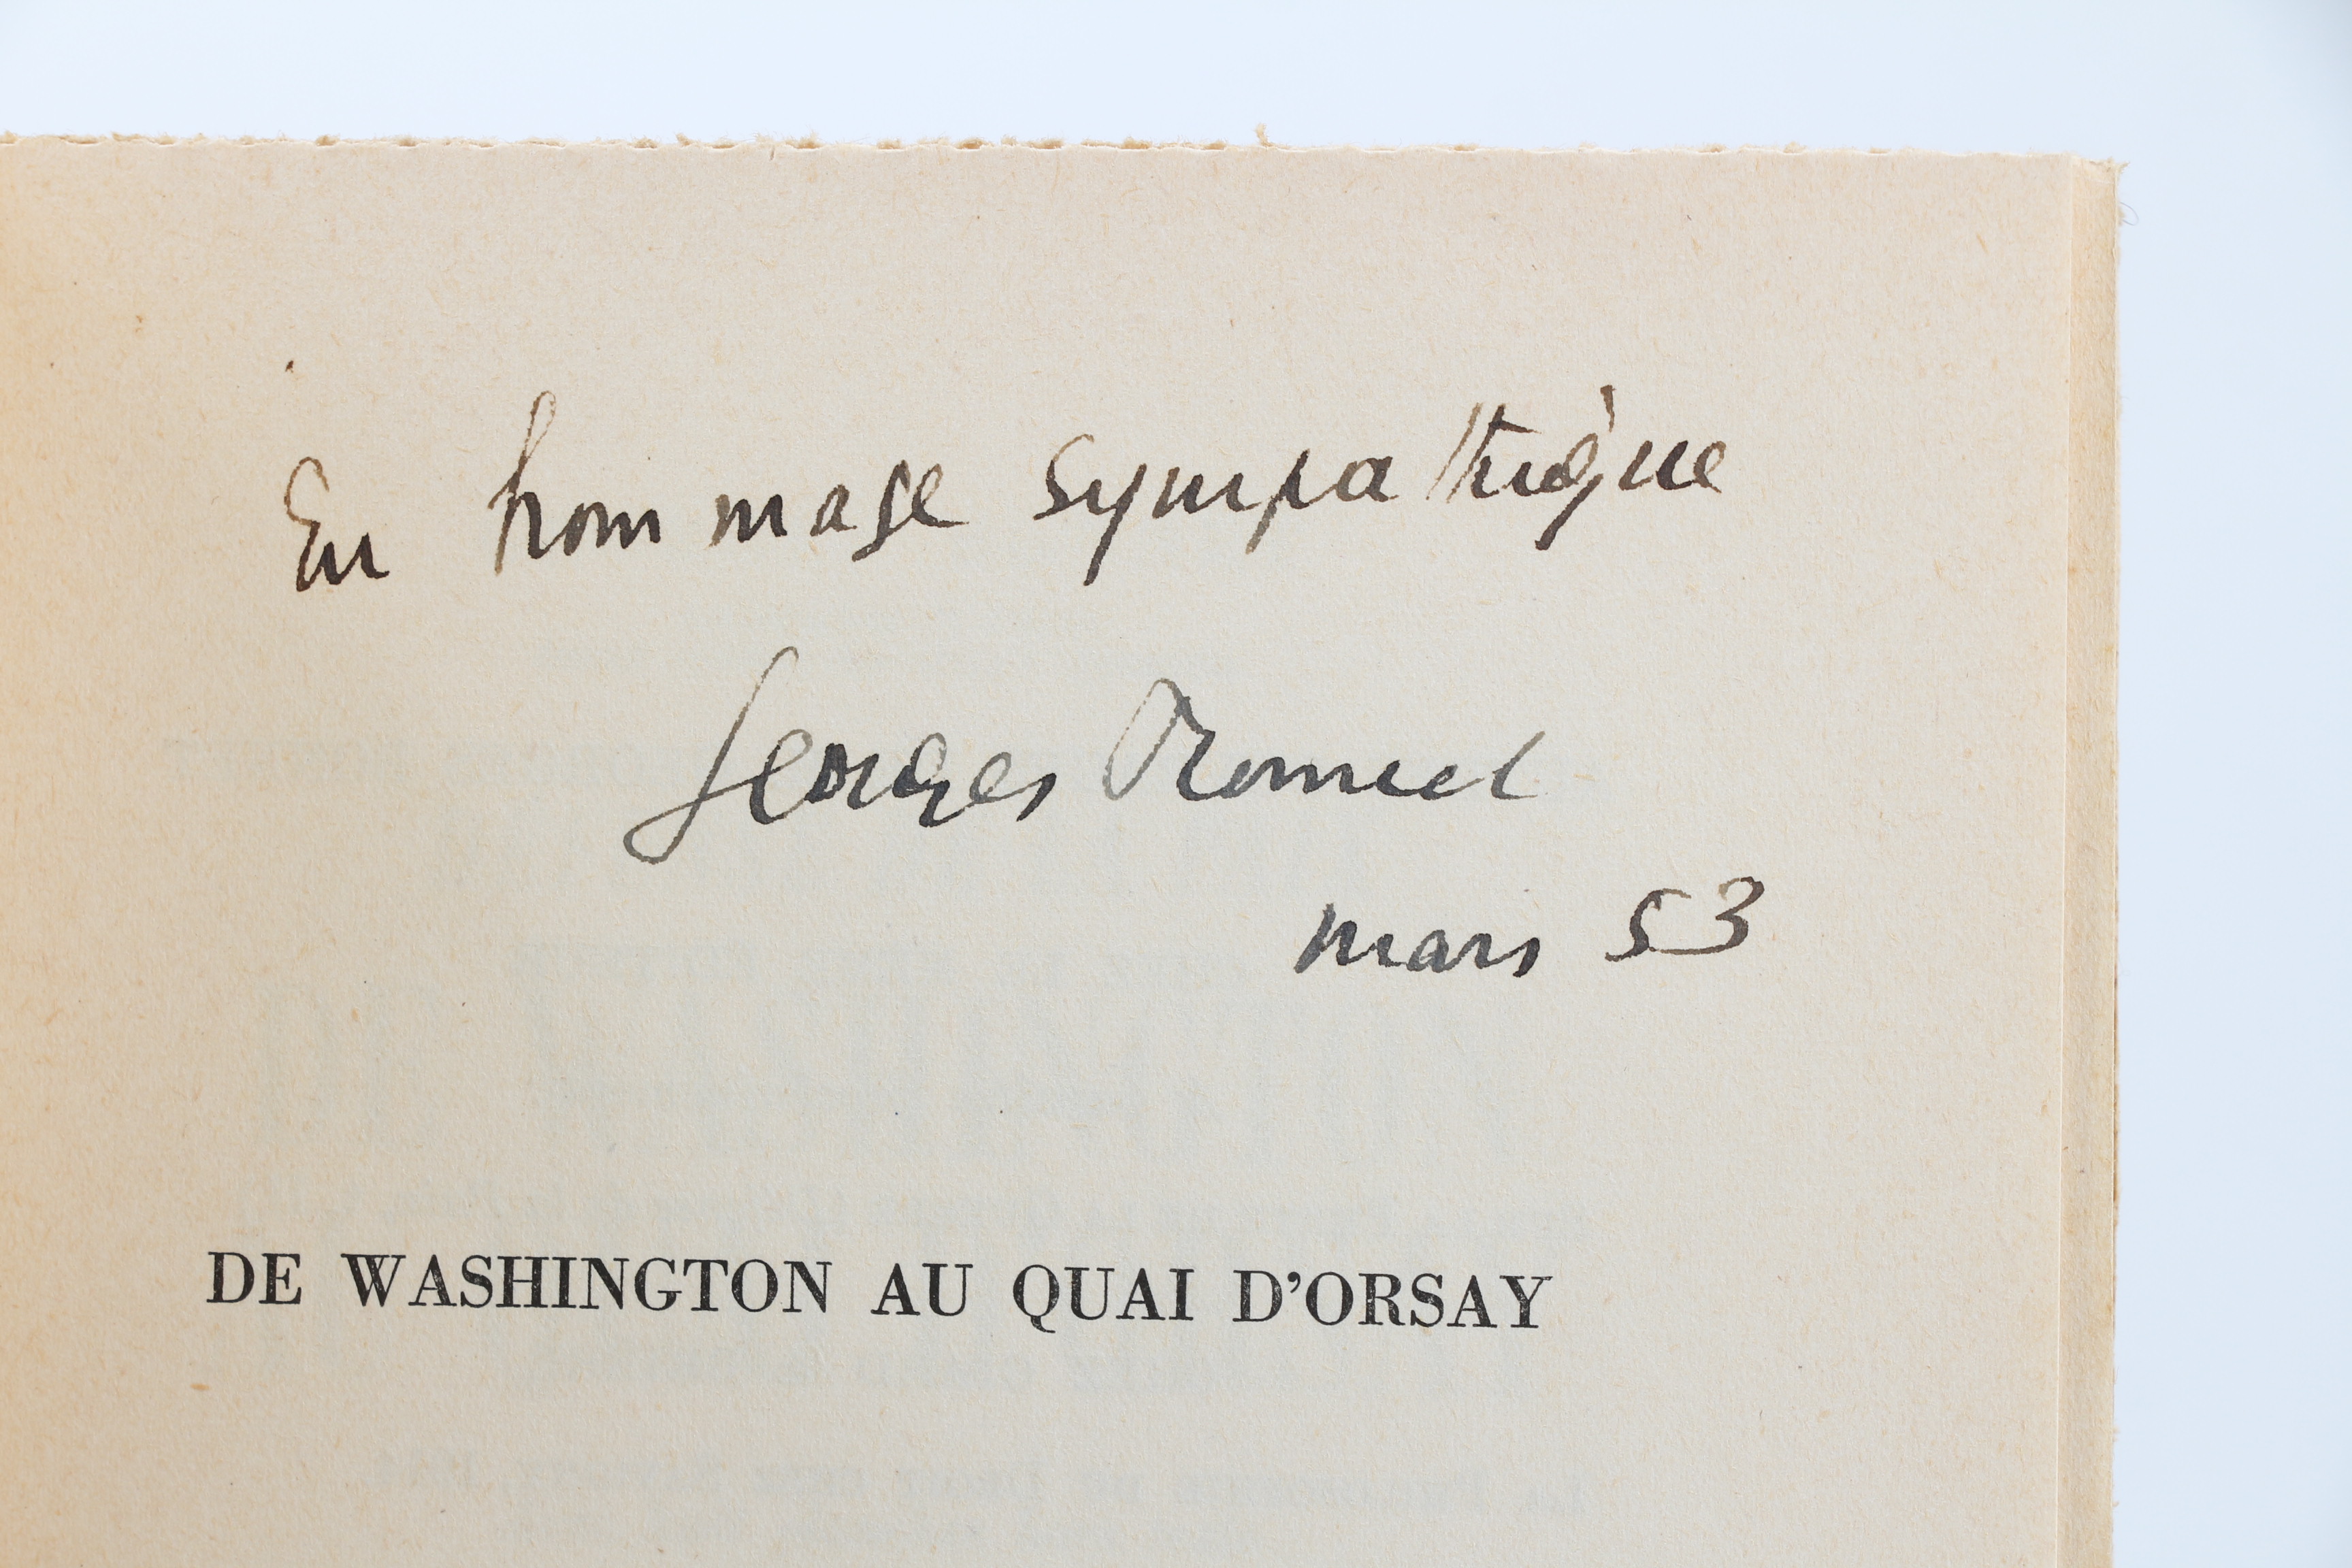 En hommage sympathique
Georges Bonnet
mars 53
DE WASHINGTON AU QUAI D'ORSAY